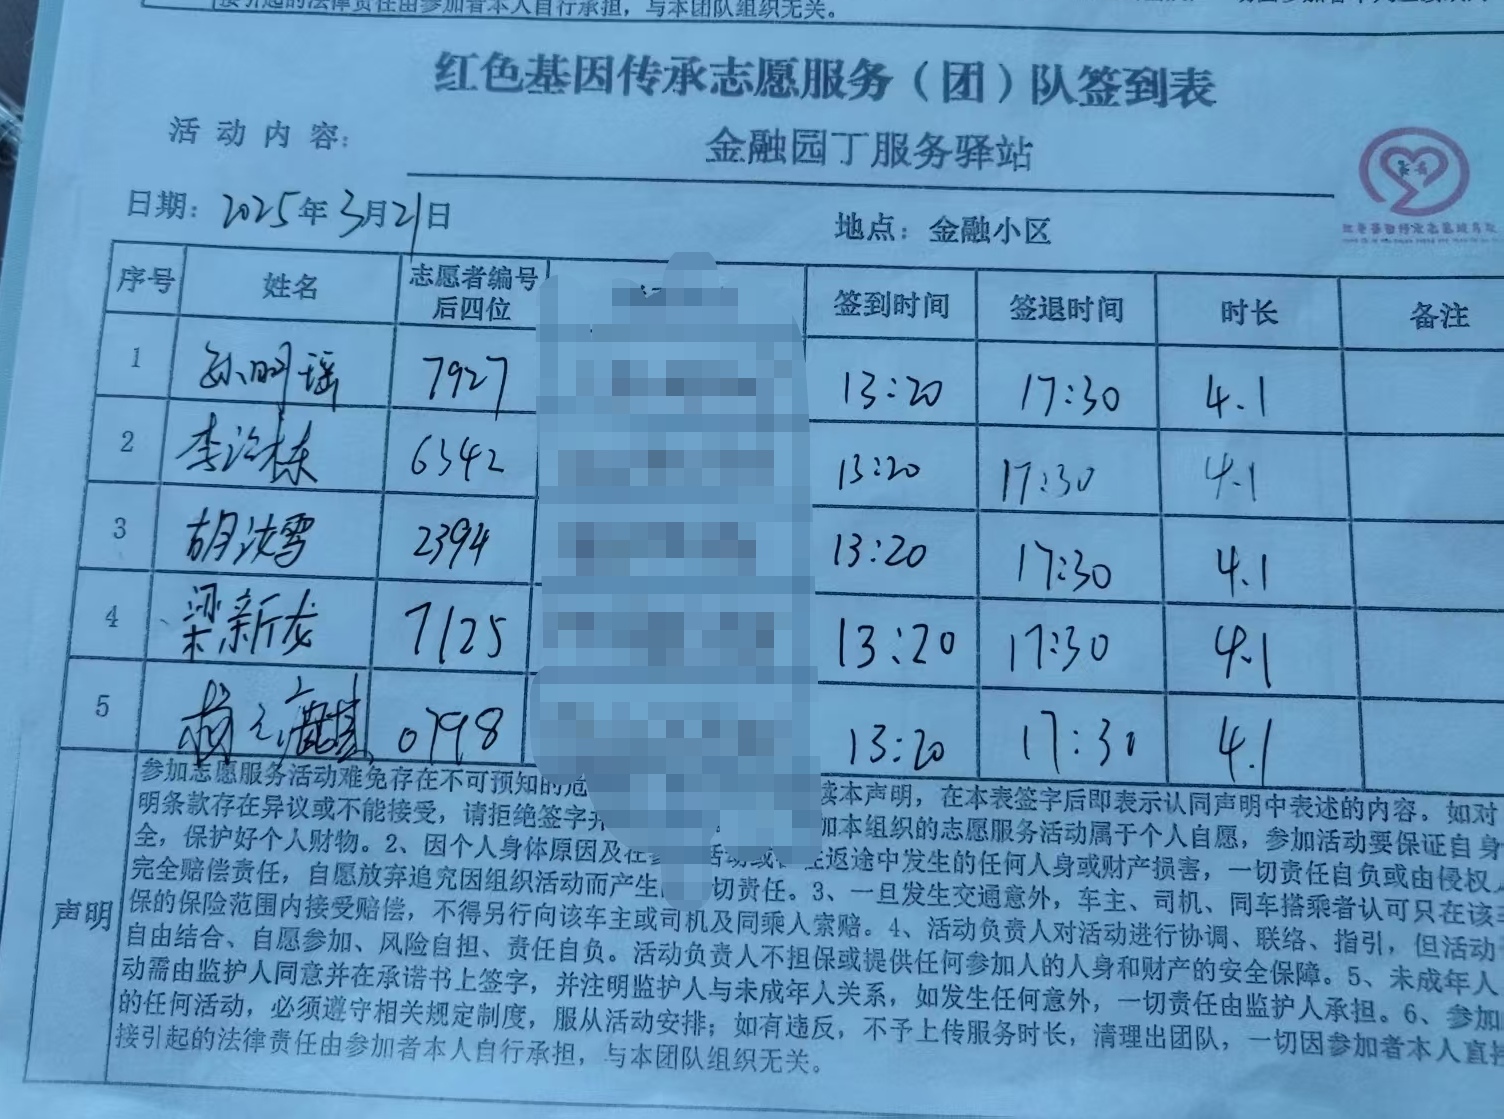 接引起的法律责任由参加者本人自行承担，与本团队组织无关。
红色基因传承志愿服务（团）队签到表
活动内容： 金融园丁服务驿站
日期：2025年3月21日 地点：金融小区
序号 姓名 志愿者编号后四位 签到时间 签退时间 时长 备注
1 孙明瑶 7927 13:20 17:30 4.1
2 李 栋 6342 13:20 17:30 4.1
3 胡 雪 2394 13:20 17:30 4.1
4 梁新龙 7125 13:20 17:30 4.1
5 0798 13:20 17:30 4.1
声明
参加志愿服务活动难免存在不可预知的危 读本声明，在本表签字后即表示认同声明中表述的内容。如对
明条款存在异议或不能接受，请拒绝签字并 加本组织的志愿服务活动属于个人自愿，参加活动要保证自身
全，保护好个人财物。2、因个人身体原因及在 活动或 在返途中发生的任何人身或财产损害，一切责任自负或由侵权
完全赔偿责任，自愿放弃追究因组织活动而产生 一切责任。3、一旦发生交通意外，车主、司机、同车搭乘者认可只在该
保的保险范围内接受赔偿，不得另行向该车主或司机及同乘人索赔。4、活动负责人对活动进行协调、联络、指引，但活动
自由结合、自愿参加、风险自担、责任自负。活动负责人不担保或提供任何参加人的人身和财产的安全保障。5、未成年人
动需由监护人同意并在承诺书上签字，并注明监护人与未成年人关系，如发生任何意外，一切责任由监护人承担。6、参加
的任何活动，必须遵守相关规定制度，服从活动安排；如有违反，不予上传服务时长，清理出团队，一切因参加者本人直接
接引起的法律责任由参加者本人自行承担，与本团队组织无关。